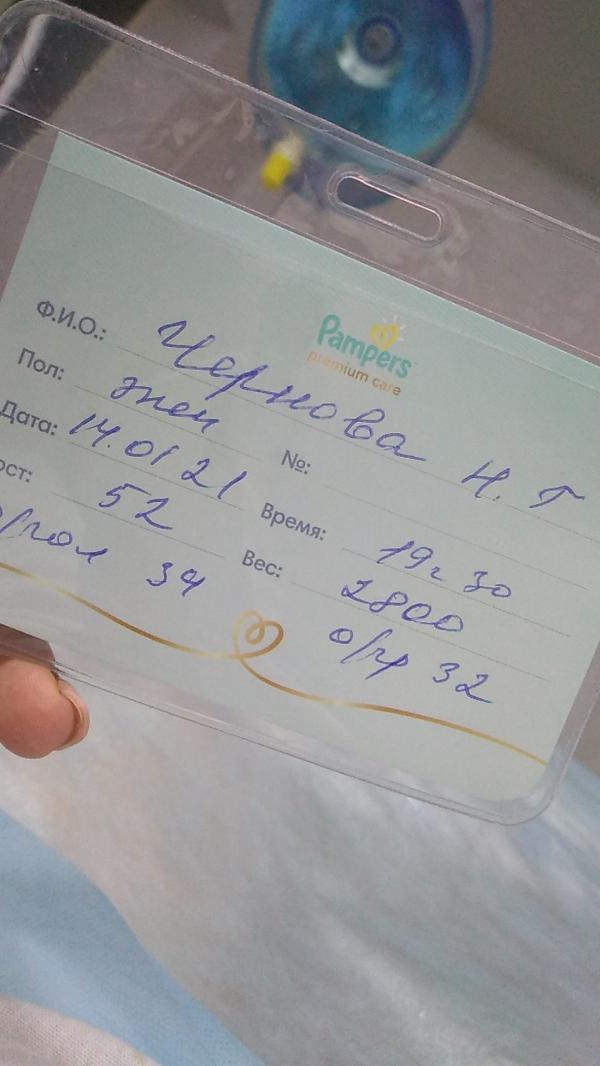 Pampers
premium care
Ф.И.О.: Чернова Н. Г
Пол: жен №:
Дата: 14.01 21 Время: 19ч 30
ост: 52 Вес: 2800
о/гол 34 о/гр 32